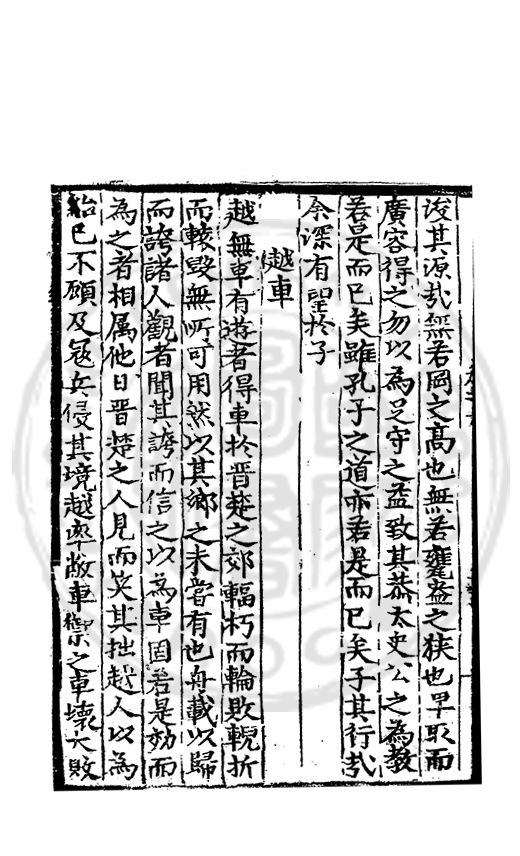 浚其源哉無若岡之高也無若甕盎之狹也早取而
廣容得之勿以為足守之益致其恭太史公之為教
若是而已矣雖孔子之道亦若是而已矣子其行哉
余深有望扵子
越車
越無車有遊者得車扵晋楚之郊輻朽而輪敗輗折
而轅毀無所可用然以其鄉之未嘗有也舟載以歸
而誇諸人觀者聞其誇而信之以為車固若是効而
為之者相属他日晋楚之人見而笑其拙越人以為
紿已不顧及寇兵侵其境越率敝車禦之車壞大敗